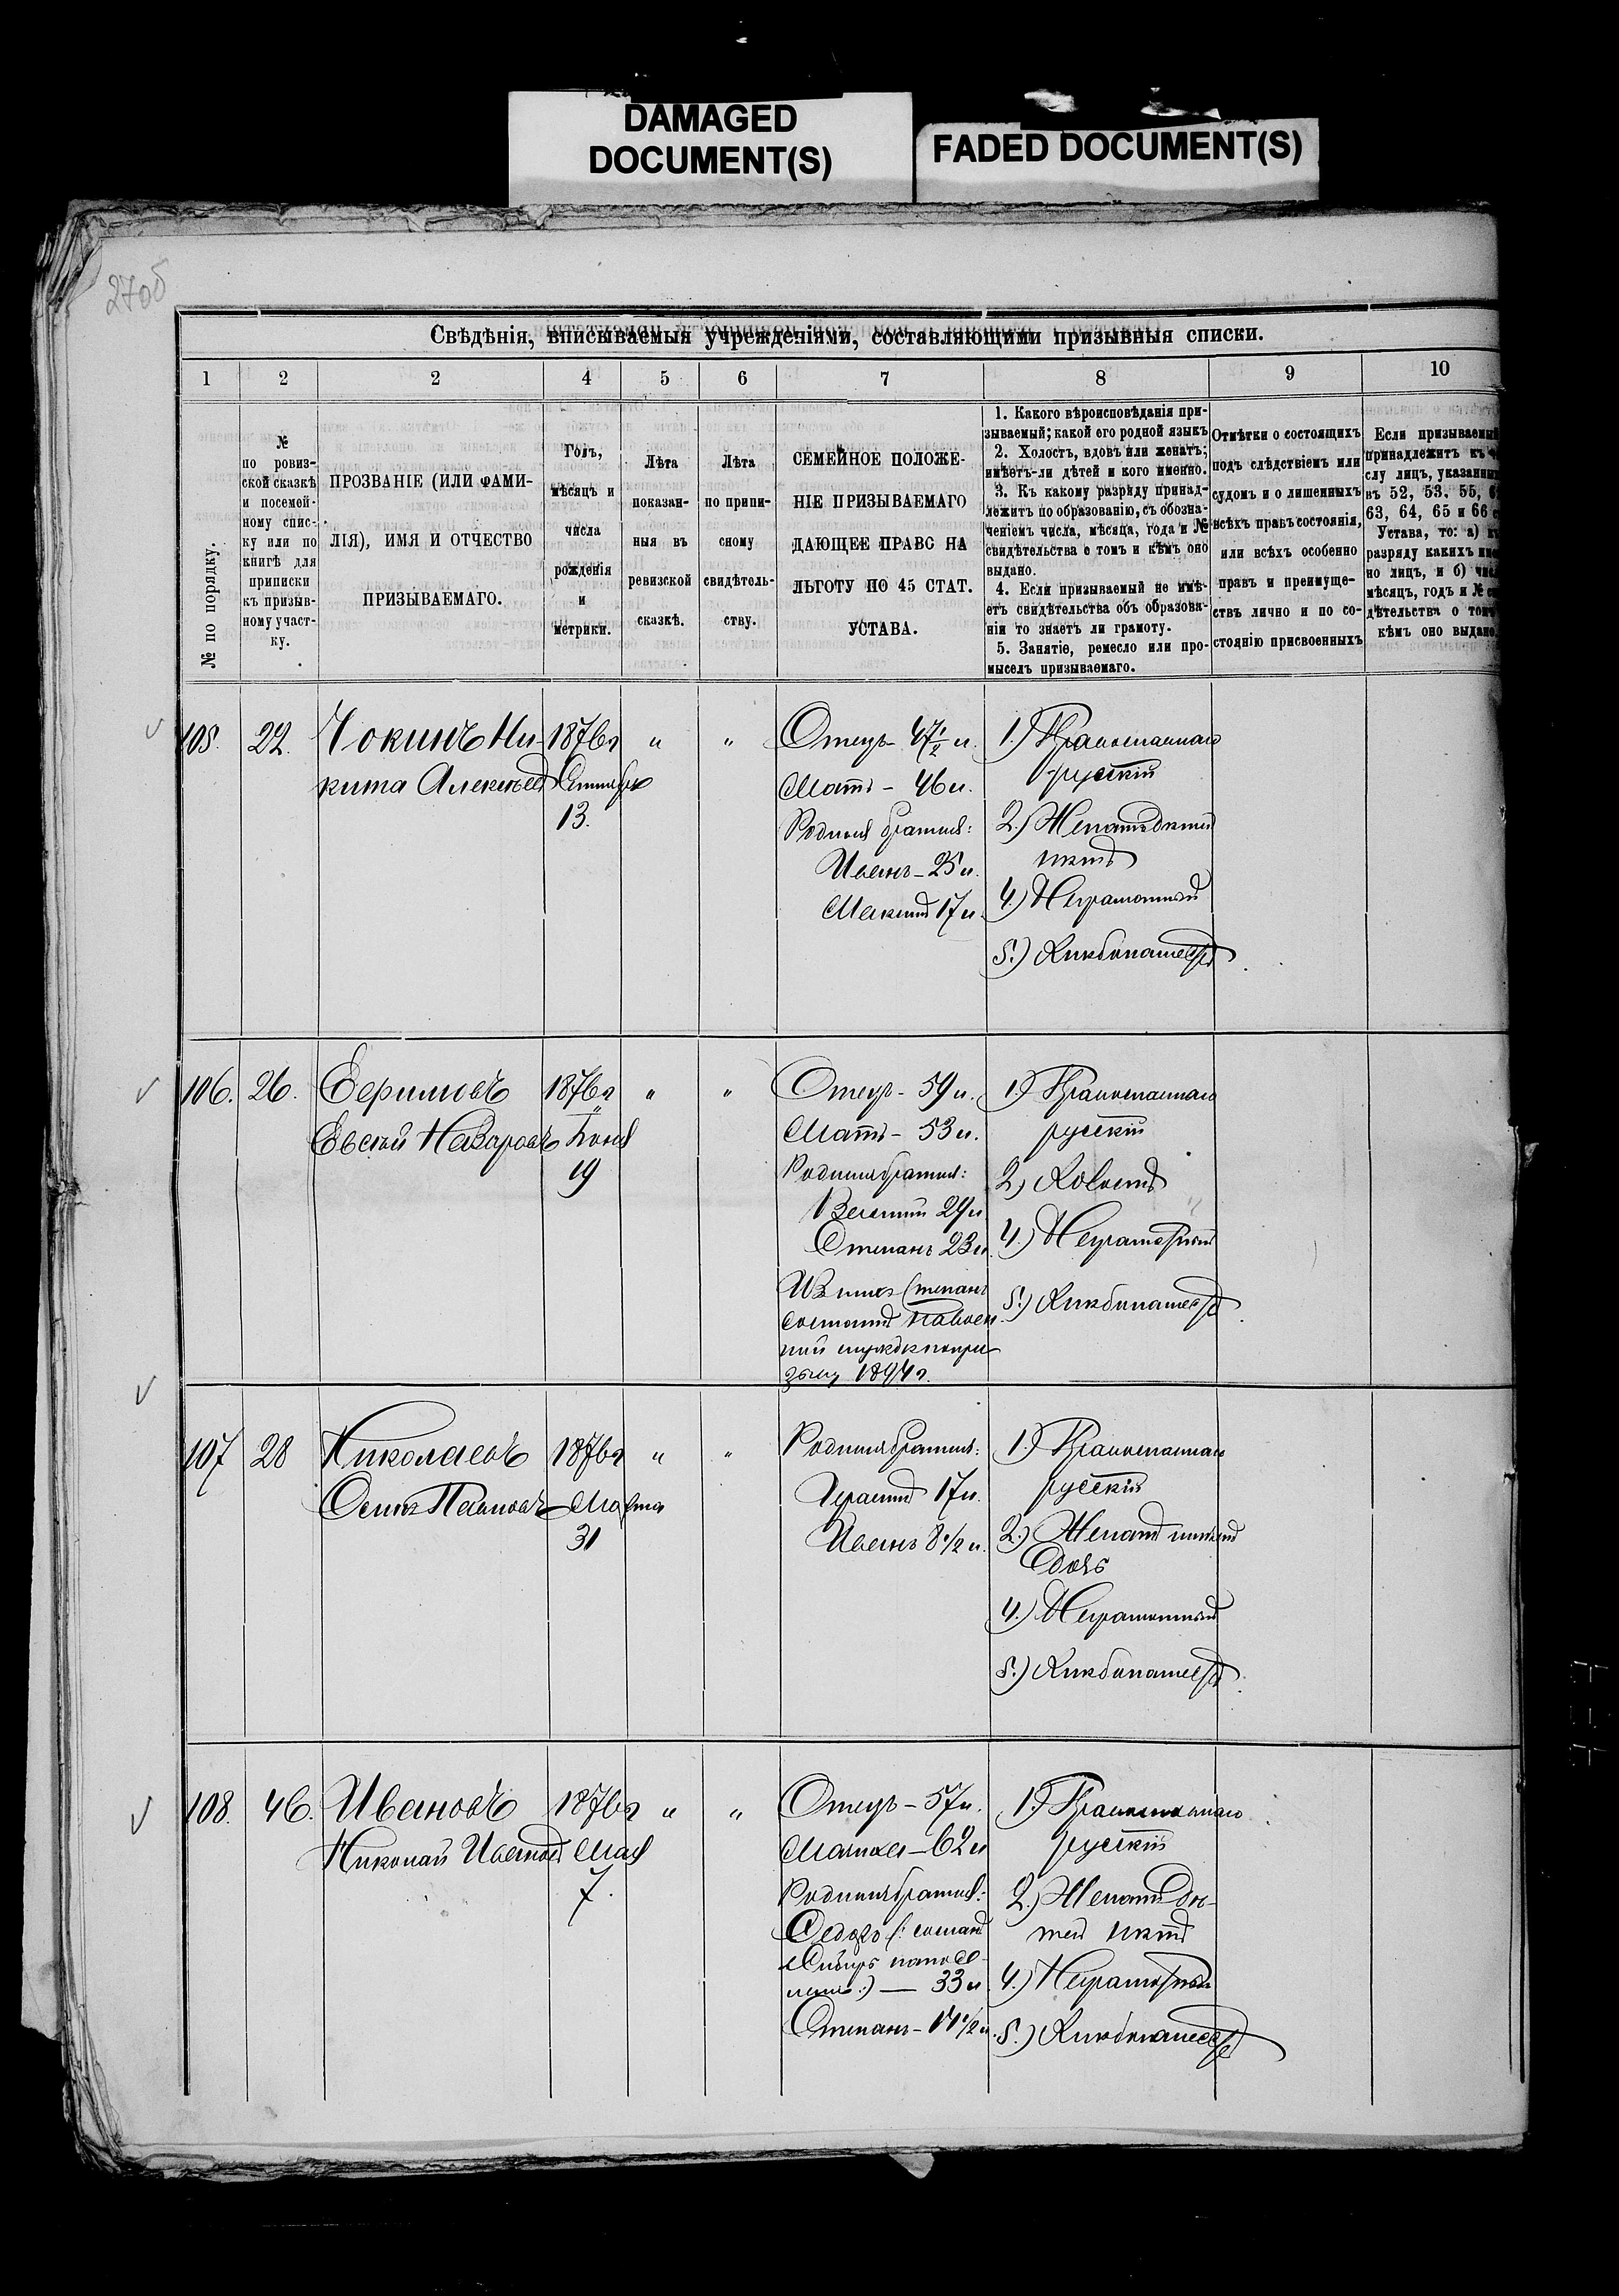 DAMAGED
DOCUMENT(S)
FADED DOCUMENT(S)
270б
Свѣдѣнія, вписываемыя учрежденіями, составляющими призывныя списки.
1 2 2 4 5 6 7 8 9 10
№ по порядку.
№
по ровиз-
ской сказкѣ
и посемей-
ному спис-
ку или по
книгѣ для
приписки
къ призыв-
ному участ-
ку.
ПРОЗВАНІЕ (ИЛИ ФАМИ-
ЛІЯ), ИМЯ И ОТЧЕСТВО
ПРИЗЫВАЕМАГО.
Годъ,
мѣсяцъ и
числа
рожденія
и
метрики.
Лѣта
показан-
ныя въ
ревизской
сказкѣ.
Лѣта
по припи-
сному
свидѣтель-
ству.
СЕМЕЙНОЕ ПОЛОЖЕ-
НІЕ ПРИЗЫВАЕМАГО
ДАЮЩЕЕ ПРАВО НА
ЛЬГОТУ ПО 45 СТАТ.
УСТАВА.
1. Какого вѣроисповѣданія при-
зываемый; какой его родной языкъ
2. Холостъ, вдовъ или женатъ;
имѣетъ-ли дѣтей и кого именно.
3. Къ какому разряду принад-
лежитъ по образованію, съ обозна-
ченіемъ числа, мѣсяца, года и №
свидѣтельства о томъ и кѣмъ оно
выдано.
4. Если призываемый не имѣ-
етъ свидѣтельства объ образова-
ніи то знаетъ ли грамоту.
5. Занятіе, ремесло или про-
мыселъ призываемаго.
Отмѣтки о состоящихъ
подъ слѣдствіемъ или
судомъ и о лишенныхъ
всѣхъ правъ состоянія,
или всѣхъ особенно
правъ и преимуще-
ствъ лично и по со-
стоянію присвоенныхъ
Если призываемый
принадлежитъ къ ч
слу лицъ, указанных
въ 52, 53. 55, 6
63, 64, 65 и 66 с
Устава, то: а) къ
разряду какихъ име
но лицъ, и б) чис
мѣсяцъ, годъ и № с
дѣтельства о томъ
кѣмъ оно выдано.
105. 22. Чокинъ Ни-
кита Алексѣев
1876 г
Сентября
13.
" "
Отецъ - 47 1/2 л.
Мать - 46 л.
Родныя братья:
Иванъ - 25 л.
Максимъ 17 л.
1.) Православнаго
русскій
2.) Женатъ дѣтей
нѣтъ
4.) Неграмотный
5.) Хлѣбопашест
106. 26. Ефимовъ
Евсѣй Назаровъ
1876 г
Іюня
19
" "
Отецъ - 59 л.
Мать - 53 л.
Родныя братья:
Василий 29 л.
Степанъ 23 л.
Изъ нихъ Степанъ
состоитъ на воен
ной службѣ по при-
зыву 1894 г.
1.) Православнаго
русскій
2.) Холостъ
4.) Неграмотный
5.) Хлѣбопашест
107 28 Николаевъ
Осипъ Павловъ
1876 г
Марта
31
" "
Родныя братья:
Герасимъ 17 л.
Иванъ 8 1/2 л.
1.) Православнаго
русскій
2.) Женатъ имѣетъ
дочь
4.) Неграмотный
5.) Хлѣбопашест
108. 46. Ивановъ
Николай Ивановъ
1876 г
Мая
7.
" "
Отецъ - 57 л.
Мачиха - 62 л
Родныя братья:
Федоръ (: сослан
в Сибирь на посе-
леніе :) — 33 л.
Степанъ - 14 1/2 л.
1.) Православнаго
русскій
2.) Женатъ дѣ-
тей нѣтъ
4.) Неграмотный
5.) Хлѣбопашест